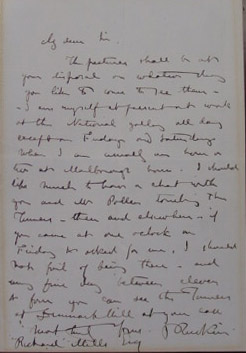 My dear Sir.
The pictures shall be at
your disposal on whatever day
you like to come to see them -
- I am myself at present at work
at the National Gallery all day
except on Fridays and Saturdays
when I am usually an hour or
two at Marlborough house. I should
like much to have a chat with
you and Mr Pollen touching the
Turners - there and elsewhere - if
you came at one oclock on
Friday & asked for me. I should
not fail of being there - and
any fine day between eleven
& four you can see the Turners
at Denmark Hill at your ease
Most truly yours. J Ruskin.
Richard Mills Esq